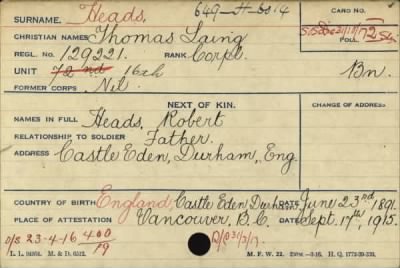 649-H-8814 CARD NO.
SURNAME. Heads.
CHRISTIAN NAMES Thomas Laing
REGL. NO. 129221. RANK Corpl.
UNIT 72nd 16th Bn.
FORMER CORPS Nil
NEXT OF KIN. CHANGE OF ADDRESS
NAMES IN FULL Heads, Robert
RELATIONSHIP TO SOLDIER Father.
ADDRESS Castle Eden, Durham, Eng.
COUNTRY OF BIRTH England, Castle Eden Durham DATE June 23rd 1891.
PLACE OF ATTESTATION Vancouver, B.C. DATE Sept. 17th, 1915.
D/S 23-4-16 400/79
L. L. M. & D. M. F. W. 22.